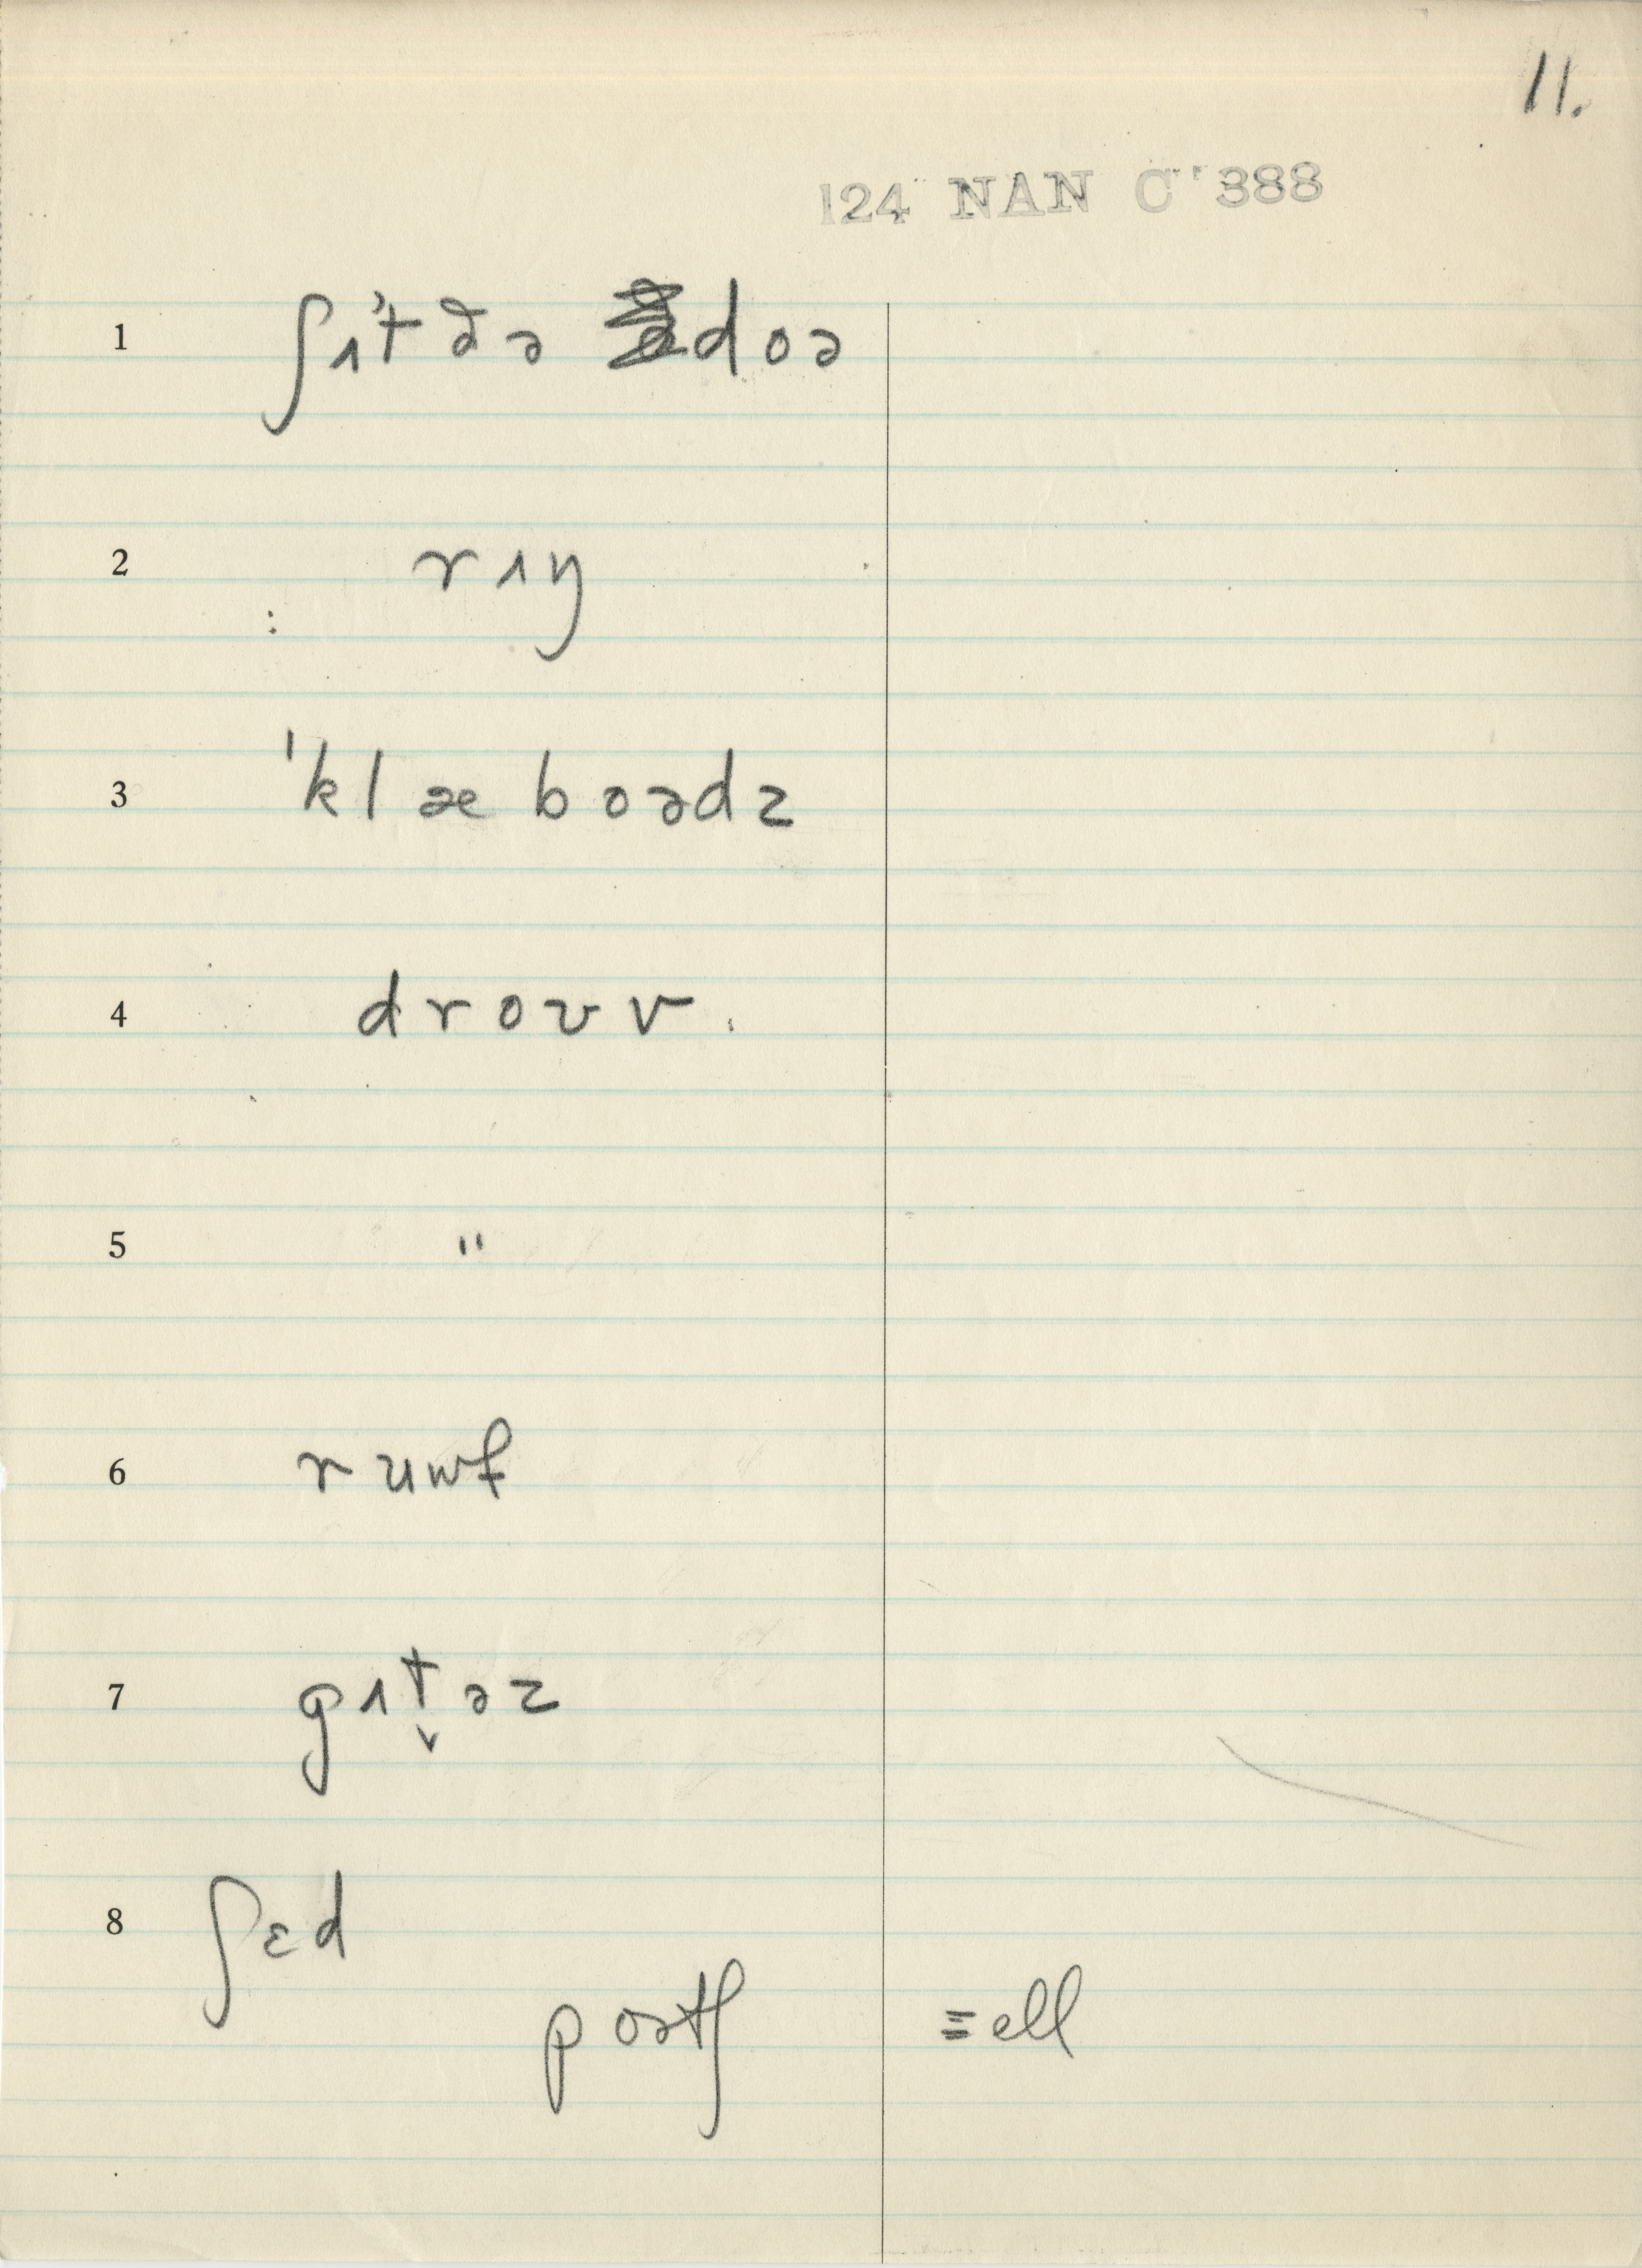 11.
124 NAN C '388
1 ʃɪ't ðə doə
2 rɪŋ
3 'klæboədz
4 droʊv.
5 "
6 ruwf
7 gɪt̬əz
8 ʃɛd
poətʃ ≡ ell